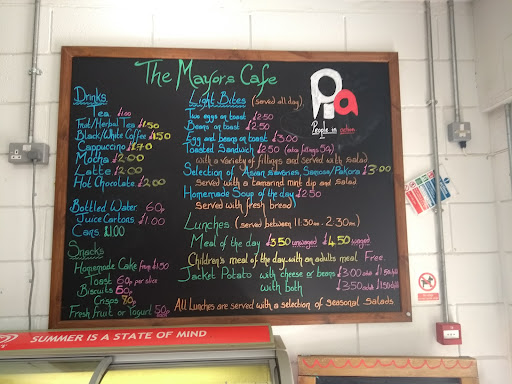 The Mayors Cafe
Drinks
Tea £1.00
Fruit/Herbal Tea £1.50
Black/White Coffee £1.50
Cappuccino £1.70
Mocha £2.00
Latte £2.00
Hot Chocolate £2.00
Bottled Water 60p
Juice Cartons £1.00
Cans £1.00
Snacks
Homemade Cake from £1.50
Toast 60p per slice
Biscuits 60p
Crisps 70p
Fresh Fruit or Yogurt 50p
Light Bites (served all day)
Two eggs on toast £2.50
Beans on toast £2.50
Egg and beans on toast £3.00
Toasted Sandwich £2.50
with a variety of fillings and served with salad
Selection of Asian savories, Samosa/Pakora £3.00
served with a tamarind mint dip and salad
Homemade Soup of the day £2.50
served with fresh bread)
Lunches (served between 11:30am - 2:30pm)
Meal of the day £3.50 unwaged £4.50 waged
Children's meal of the day with an adults meal Free.
Jacket Potato with cheese or beans £3.00
with both £3.50
All Lunches are served with a selection of seasonal salads
Pia
People in action
SUMMER IS A STATE OF MIND